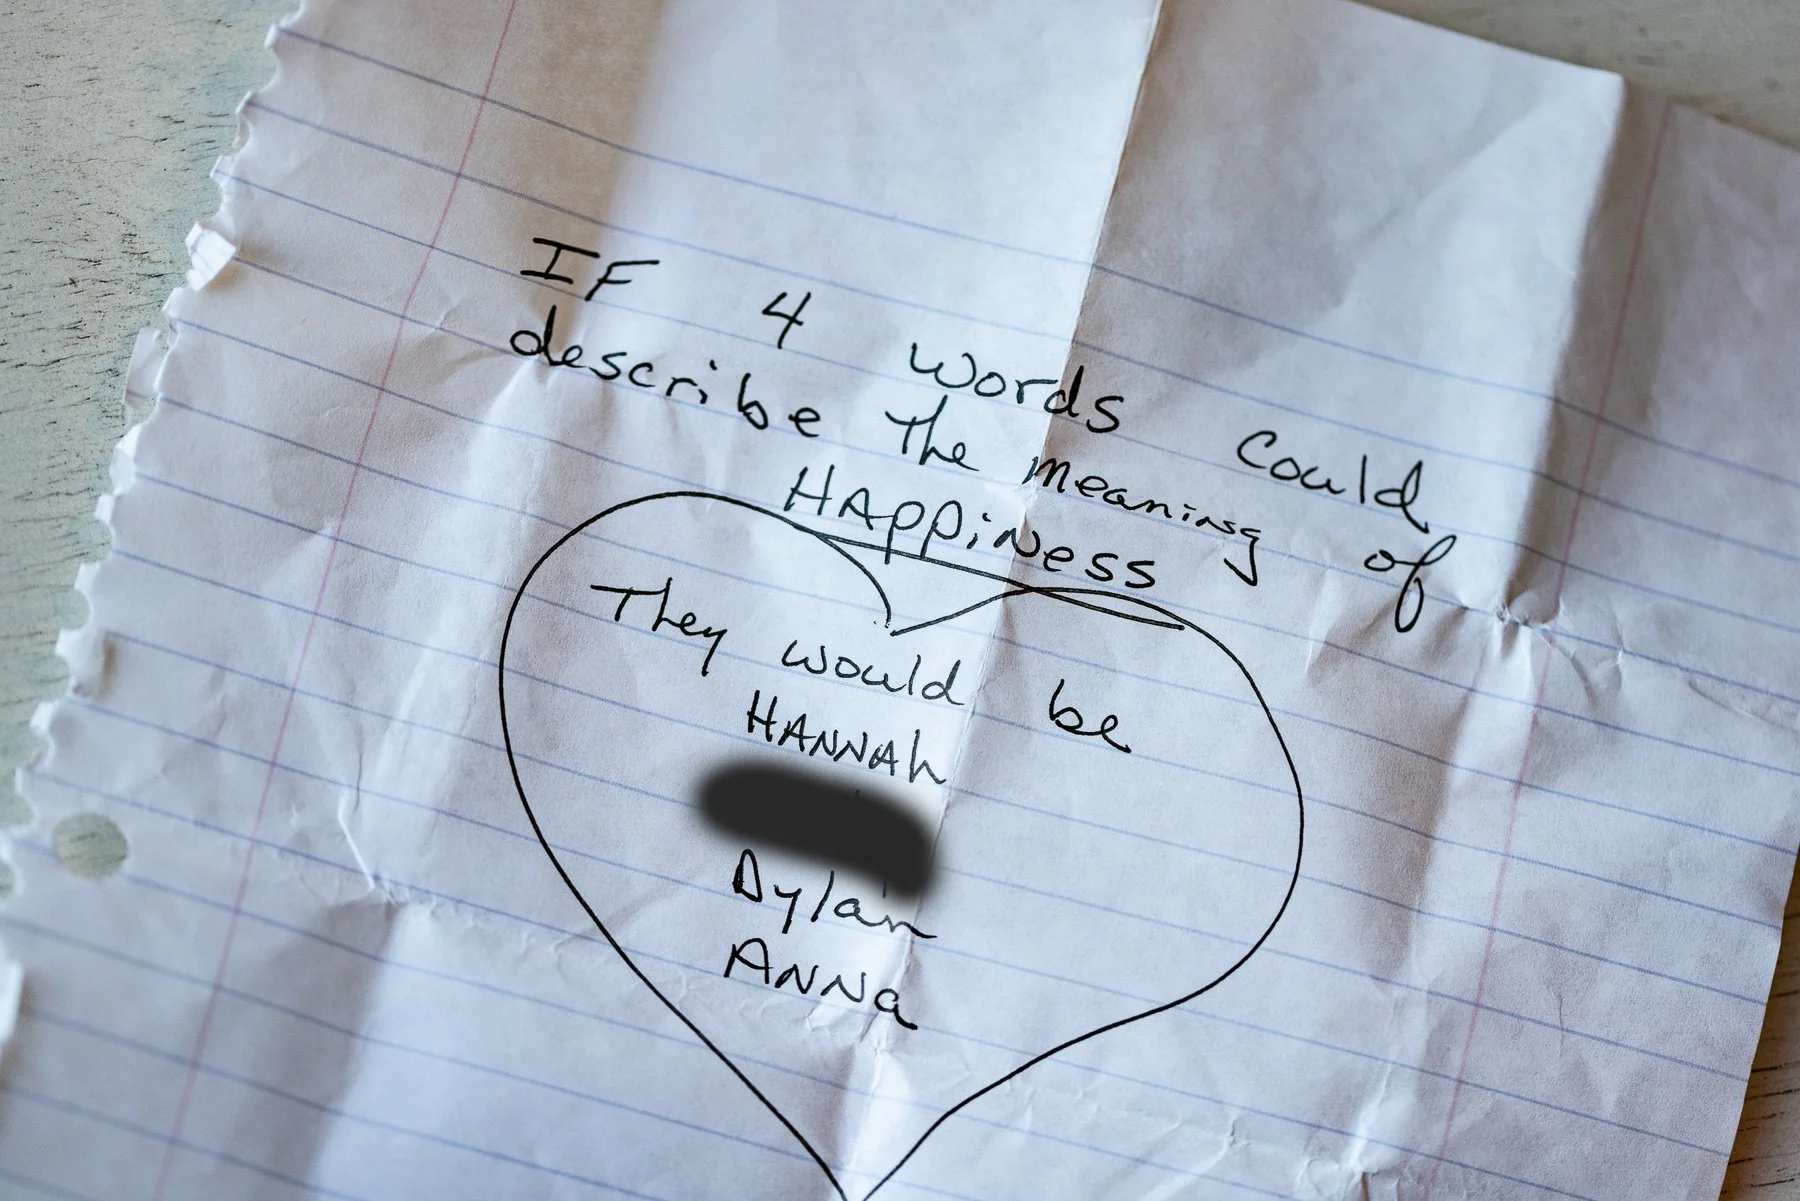 IF 4 words could
describe the meaning of
HAppiNess
They would be
HANNAh
Dylan
ANNa